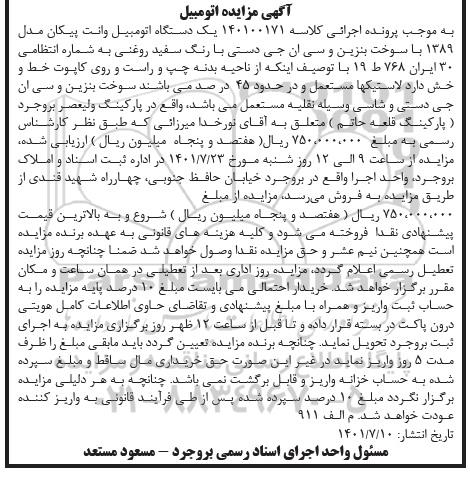 آگهی مزایده اتومبیل
به موجب پرونده اجرائی کلاسه ۱۴۰۱۰۰۱۷۱ یک دستگاه اتومبیل وانت پیکان مدل
۱۳۸۹ با سوخت بنزین و سی ان جی دستی با رنگ سفید روغنی به شماره انتظامی
۳۰ ایران ۷۶۸ ط ۱۹ با توصیف اینکه از ناحیه بدنه چپ و راست و روی کاپوت خط و
خش دارد لاستیکها مستعمل و در حدود ۴۵ در صد می باشند سوخت بنزین و سی ان
جی دستی و شاسی وسیله نقلیه مستعمل می باشد، واقع در پارکینگ ولیعصر بروجرد
( پارکینگ قلعه حاتم ) متعلق به آقای نورخدا میرزائی که طبق نظر کارشناس
رسمی به مبلغ ۷۵۰,۰۰۰,۰۰۰ ریال( هفتصد و پنجاه میلیون ریال ) ارزیابی شده،
مزایده از ساعت ۹ الی ۱۲ روز شنبه مورخ ۱۴۰۱/۷/۲۳ در اداره ثبت اسناد و املاک
بروجرد، واحد اجرا واقع در بروجرد خیابان حافظ جنوبی، چهارراه شهید قندی از
طریق مزایده به فروش می‌رسد، مزایده از مبلغ
۷۵۰,۰۰۰,۰۰۰ ریال ( هفتصد و پنجاه میلیون ریال ) شروع و به بالاترین قیمت
پیشنهادی نقدا فروخته می شود و کلیه هزینه های قانونی به عهده برنده مزایده
است همچنین نیم عشر و حق مزایده نقدا وصول خواهد شد ضمنا چنانچه روز مزایده
تعطیل رسمی اعلام گردد، مزایده روز اداری بعد از تعطیلی در همان ساعت و مکان
مقرر برگزار خواهد شد. خریدار احتمالی می بایست مبلغ ۱۰ درصد پایه مزایده را به
حساب ثبت واریز و همراه با مبلغ پیشنهادی و تقاضای حاوی اطلاعات کامل هویتی
درون پاکت در بسته قرار داده و تا قبل از ساعت ۱۲ ظهر روز برگزاری مزایده به اجرای
ثبت بروجرد تحویل نماید. چنانچه برنده مزایده تعیین گردد باید مابقی مبلغ را ظرف
مدت ۵ روز واریز نماید در غیر این صورت حق خریداری مال ساقط و مبلغ سپرده
شده به حساب خزانه واریز و قابل برگشت نمی باشد. چنانچه به هر دلیلی مزایده
برگزار نگردد مبلغ ۱۰ درصد سپرده شده پس از طی فرآیند قانونی به واریز کننده
عودت خواهد شد. م الف ۹۱۱
تاریخ انتشار: ۱۴۰۱/۷/۱۰
مسئول واحد اجرای اسناد رسمی بروجرد – مسعود مستعد